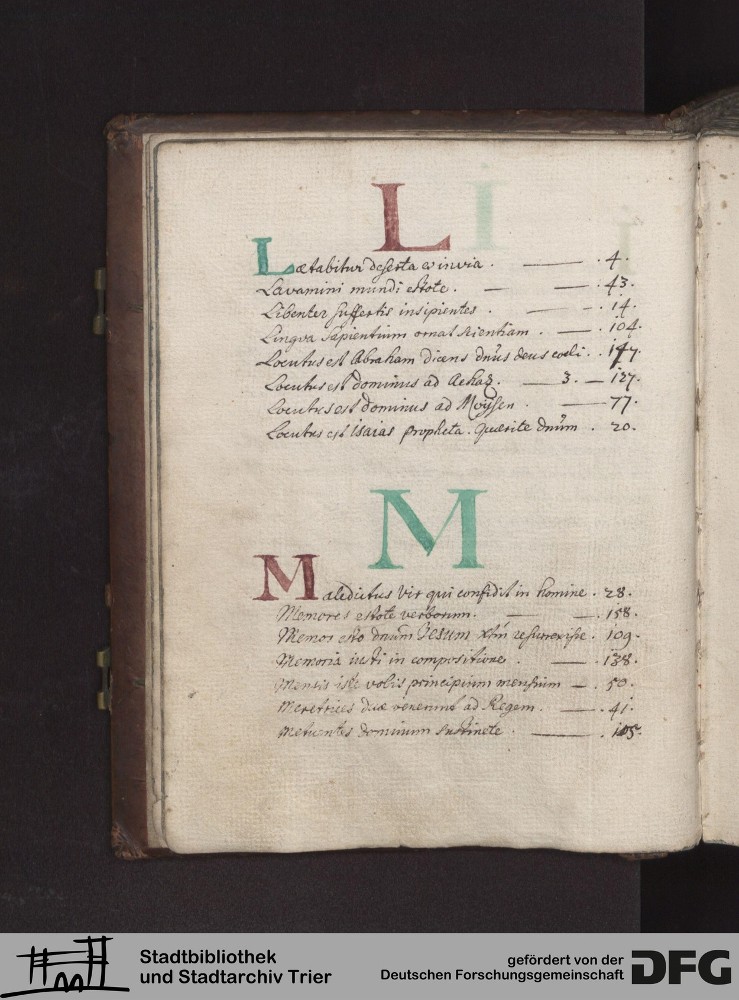 L
Lætabitur deserta et invia . — . 4.
Lavamini mundi estote . — — . 43.
Libenter suffertis insipientes . — — . 14.
Lingva sapientium ornat scientiam . — . 104.
Locutus est Abraham dicens dnūs deus cœli . . 147.
Locutus est dominus ad Achaz . — 3. — 127.
Locutus est dominus ad Moÿsen . — 77.
Locutus est Isaias propheta . Quærite dnūm . 20.
M
Maledictus vir qui confidit in homine . 28.
Memores estote verborum . — — . 158.
Memor esto dnūm Jesum xtm̄ resurrexisse . 109.
Memoria iusti in compositione . — . 138.
Mensis iste vobis principium mensium — . 50.
Meretrices duæ venerunt ad Regem . — . 41.
Metuentes dominum sustinete . — . 105.
Stadtbibliothek
und Stadtarchiv Trier
gefördert von der
Deutschen Forschungsgemeinschaft
DFG